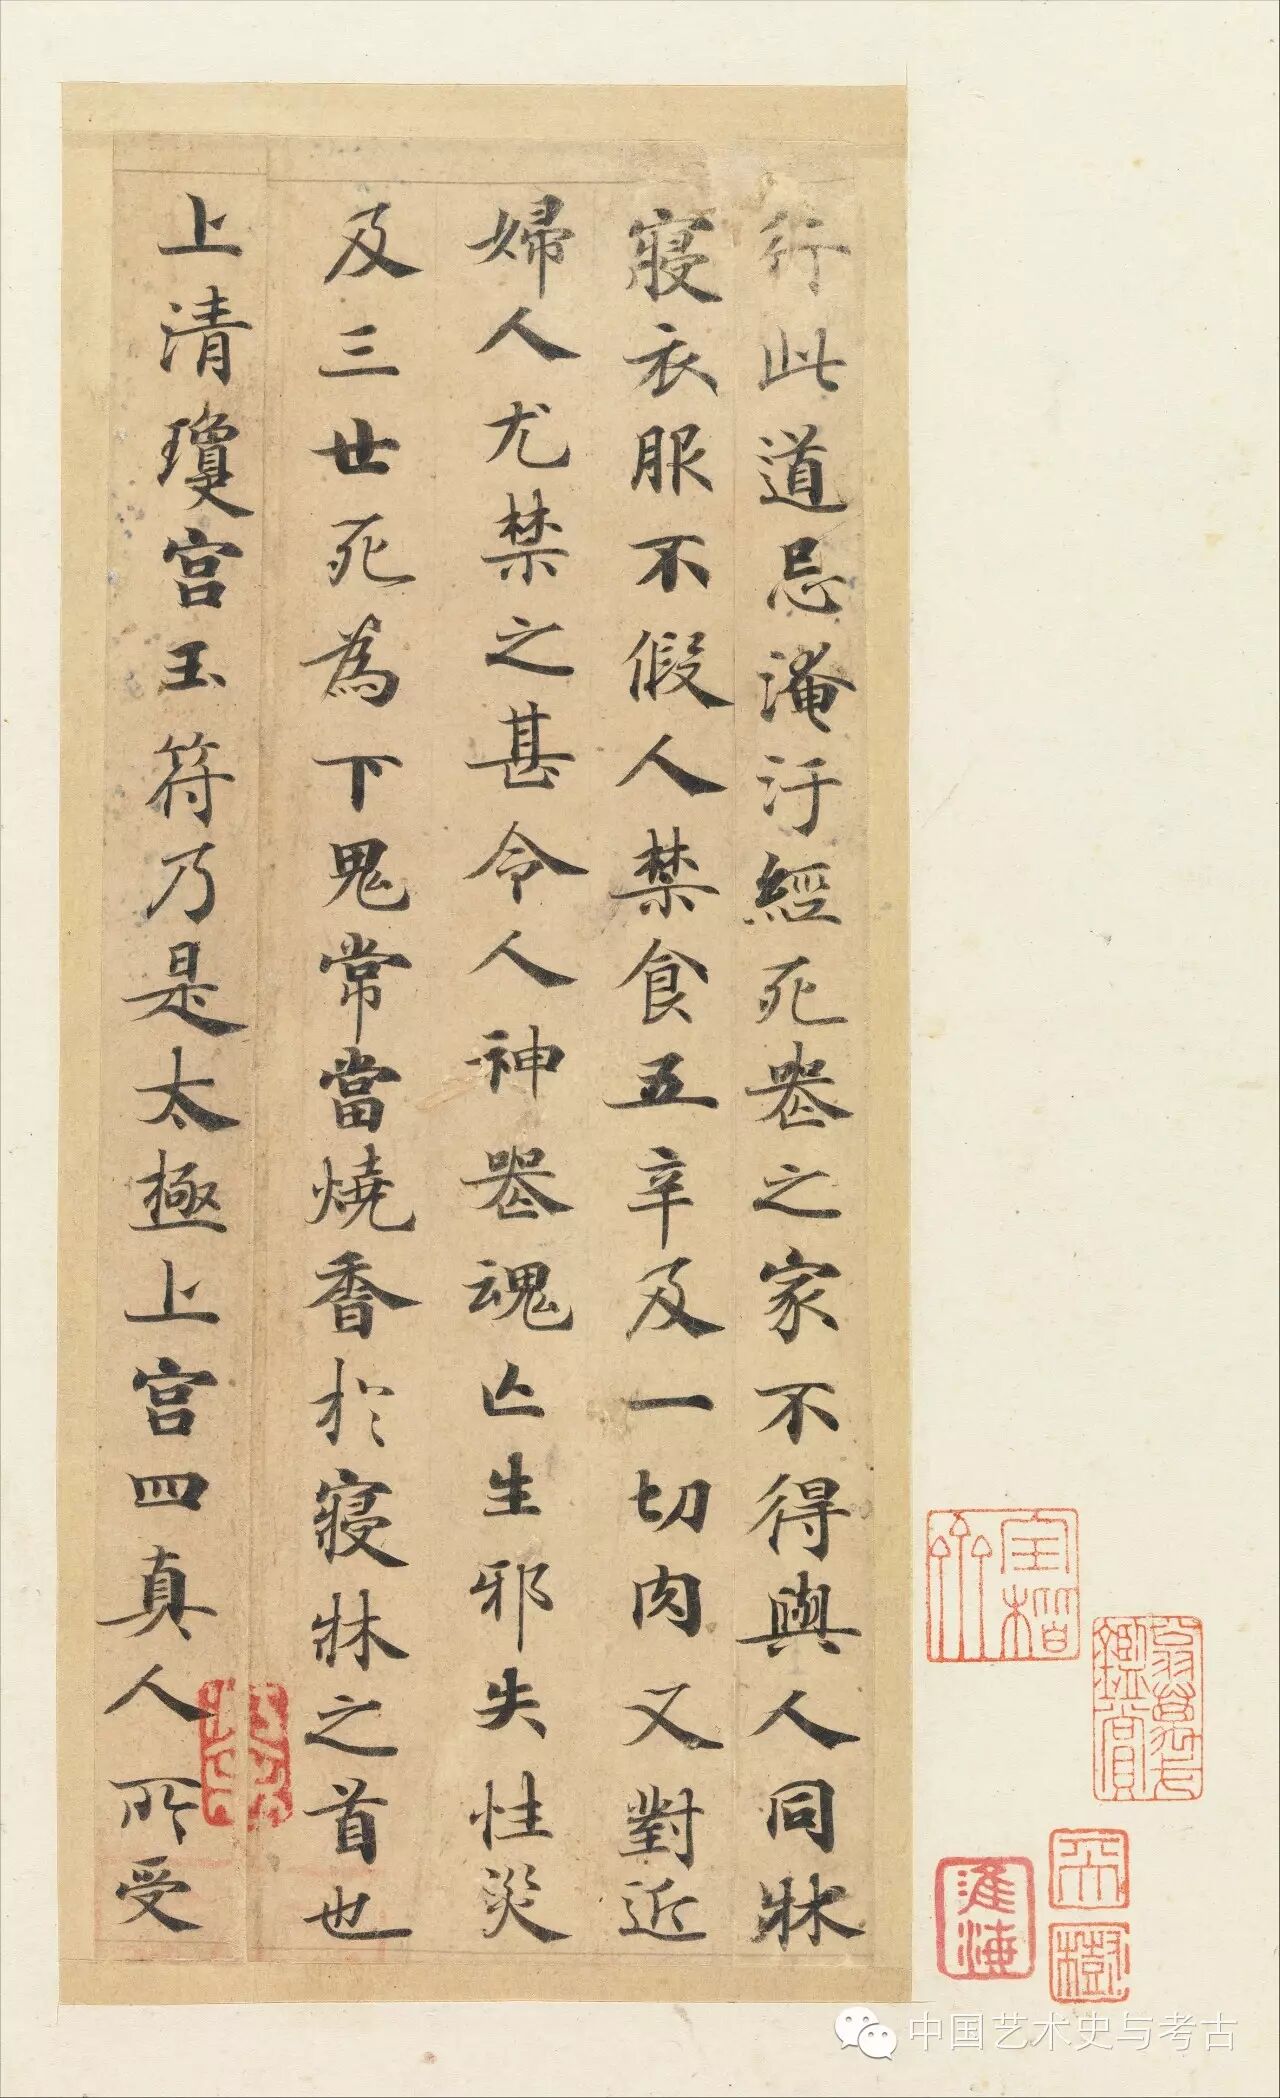 行此道忌淹汙經死䘮之家不得與人同牀
寢衣服不假人禁食五辛及一切肉又對近
婦人尤禁之甚令人神䘮魂亡生邪失性災
及三世死為下鬼常當燒香於寢牀之首也
上清瓊宮玉符乃是太極上宮四真人所受
鑑賞
淮海
玉樹
中国艺术史与考古